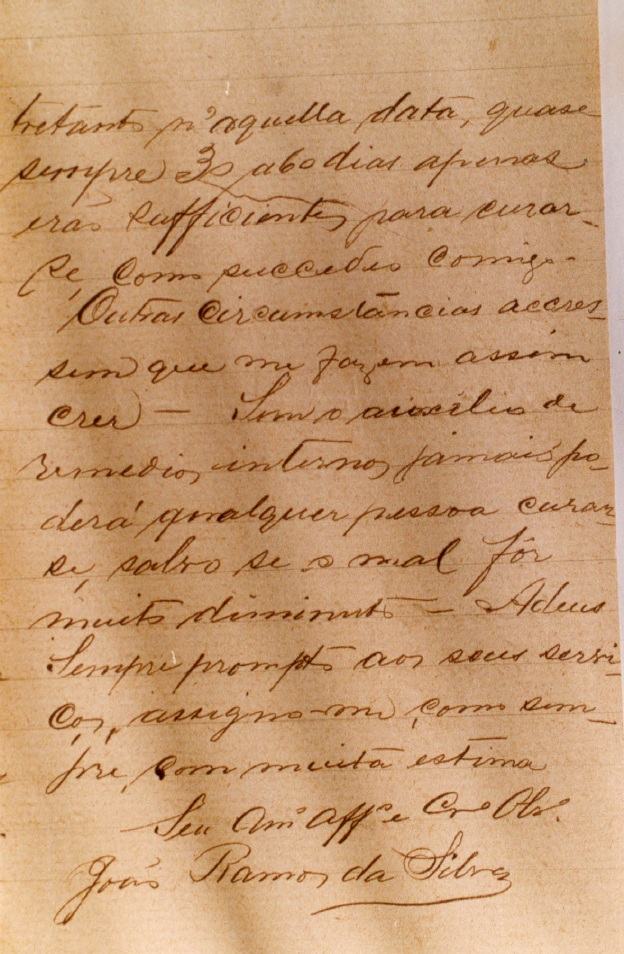 tretanto n'aquella data, quase
sempre 30 a 60 dias apenas
erão sufficientes para curar-
se, como succedeu comigo.
Outras circumstâncias accres-
sem que me fazem assim
crer) — Sem o auxilio de
remedios internos jamais po-
derá qualquer pessoa curar-
se, salvo se o mal fôr
muito diminuto — Adeus
Sempre prompto aos seus servi-
ços, assigno-me, como sem-
pre, com muita estima
Seu Amº Affº e Crº Obrº.
João Ramos da Silva